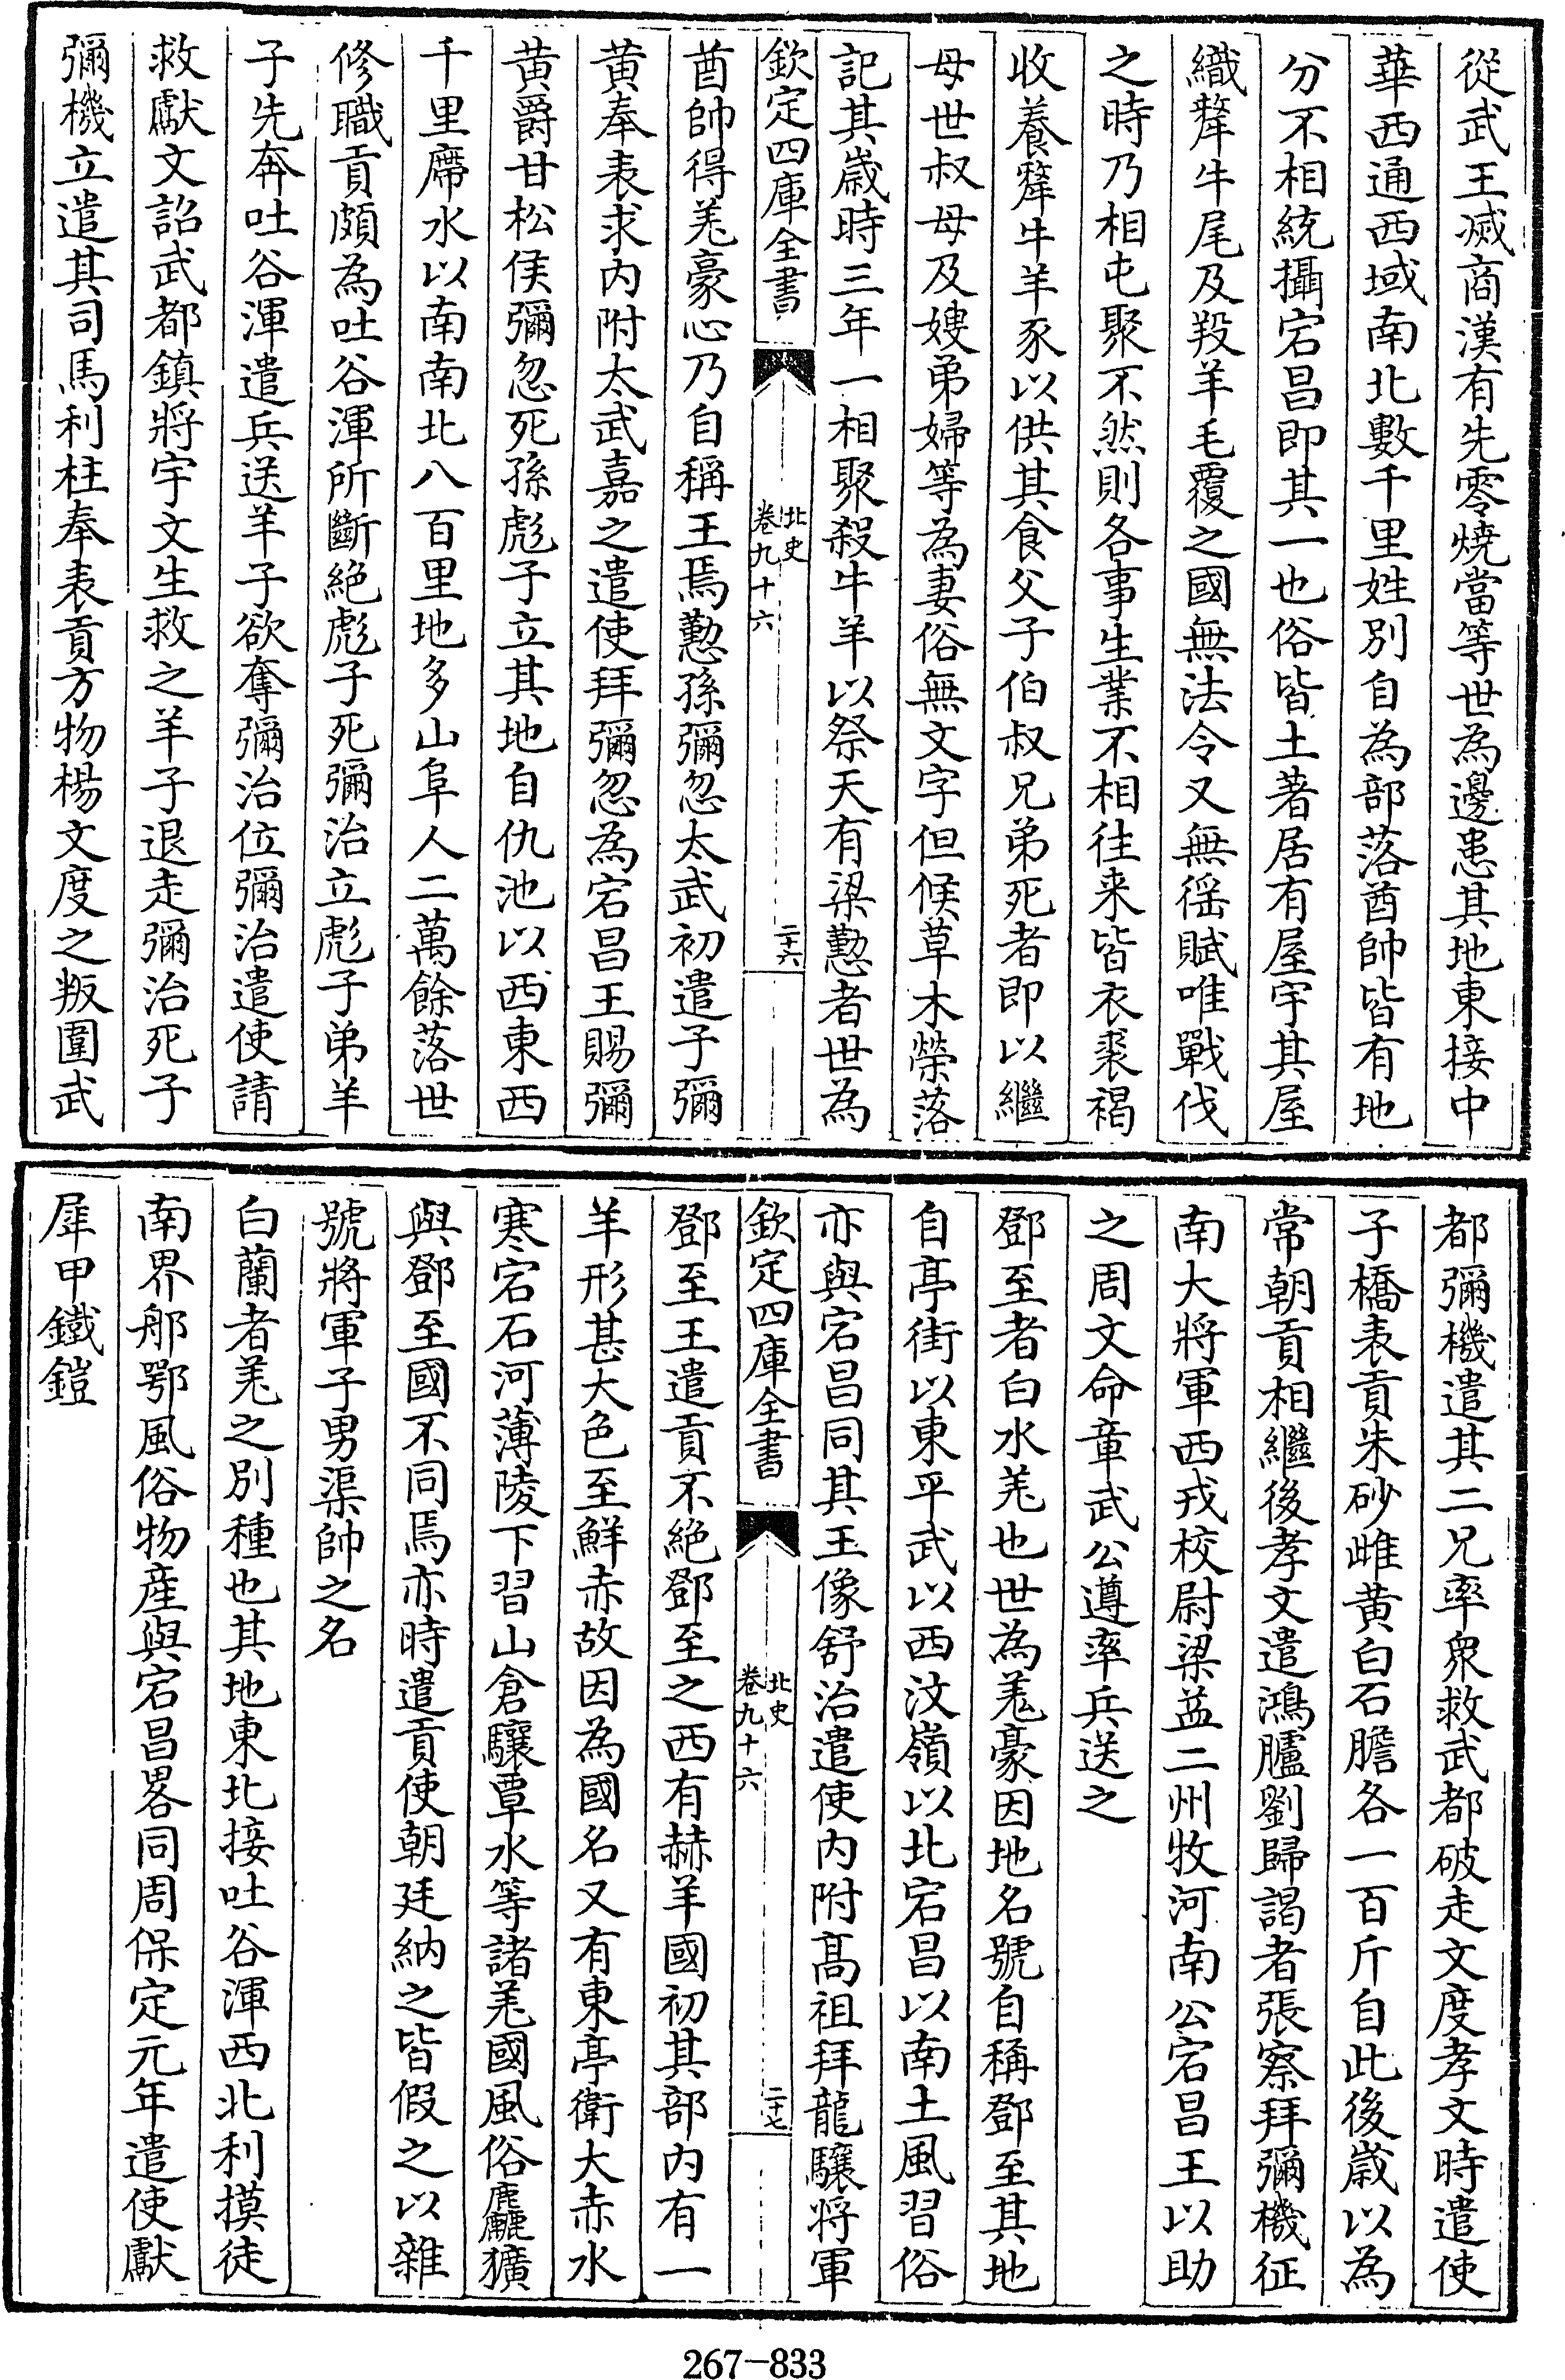 從武王滅商漢有先零燒當等世為邊患其地東接中
華西通西域南北數千里姓別自為部落酋帥皆有地
分不相統攝宕昌即其一也俗皆土著居有屋宇其屋
織犛牛尾及羖羊毛覆之國無法令又無徭賦唯戰伐
之時乃相屯聚不然則各事生業不相往来皆衣裘褐
收養犛牛羊豕以供其食父子伯叔兄弟死者即以繼
母世叔母及嫂弟婦等為妻俗無文字但候草木榮落
記其歲時三年一相聚殺牛羊以祭天有梁懃者世為
欽定四庫全書
北史
卷九十六
二十六
酋帥得羌豪心乃自稱王焉懃孫彌忽太武初遣子彌
黄奉表求内附太武嘉之遣使拜彌忽為宕昌王賜彌
黄爵甘松侯彌忽死孫彪子立其地自仇池以西東西
千里席水以南南北八百里地多山阜人二萬餘落世
修職貢頗為吐谷渾所斷絶彪子死彌治立彪子弟羊
子先奔吐谷渾遣兵送羊子欲奪彌治位彌治遣使請
救獻文詔武都鎮將宇文生救之羊子退走彌治死子
彌機立遣其司馬利柱奉表貢方物楊文度之叛圍武
都彌機遣其二兄率衆救武都破走文度孝文時遣使
子橋表貢朱砂雌黄白石膽各一百斤自此後歲以為
常朝貢相繼後孝文遣鴻臚劉歸謁者張察拜彌機征
南大將軍西戎校尉梁益二州牧河南公宕昌王以助
之周文命章武公遵率兵送之
鄧至者白水羌也世為羌豪因地名號自稱鄧至其地
自亭街以東平武以西汶嶺以北宕昌以南土風習俗
亦與宕昌同其王像舒治遣使内附髙祖拜龍驤將軍
欽定四庫全書
北史
卷九十六
二十七
鄧至王遣貢不絶鄧至之西有赫羊國初其部内有一
羊形甚大色至鮮赤故因為國名又有東亭衛大赤水
寒宕石河薄陵下習山倉驤覃水等諸羌國風俗麤獷
與鄧至國不同焉亦時遣貢使朝廷納之皆假之以雜
號將軍子男渠帥之名
白蘭者羌之別種也其地東北接吐谷渾西北利摸徒
南界郍鄂風俗物産與宕昌畧同周保定元年遣使獻
犀甲鐵鎧
267-833